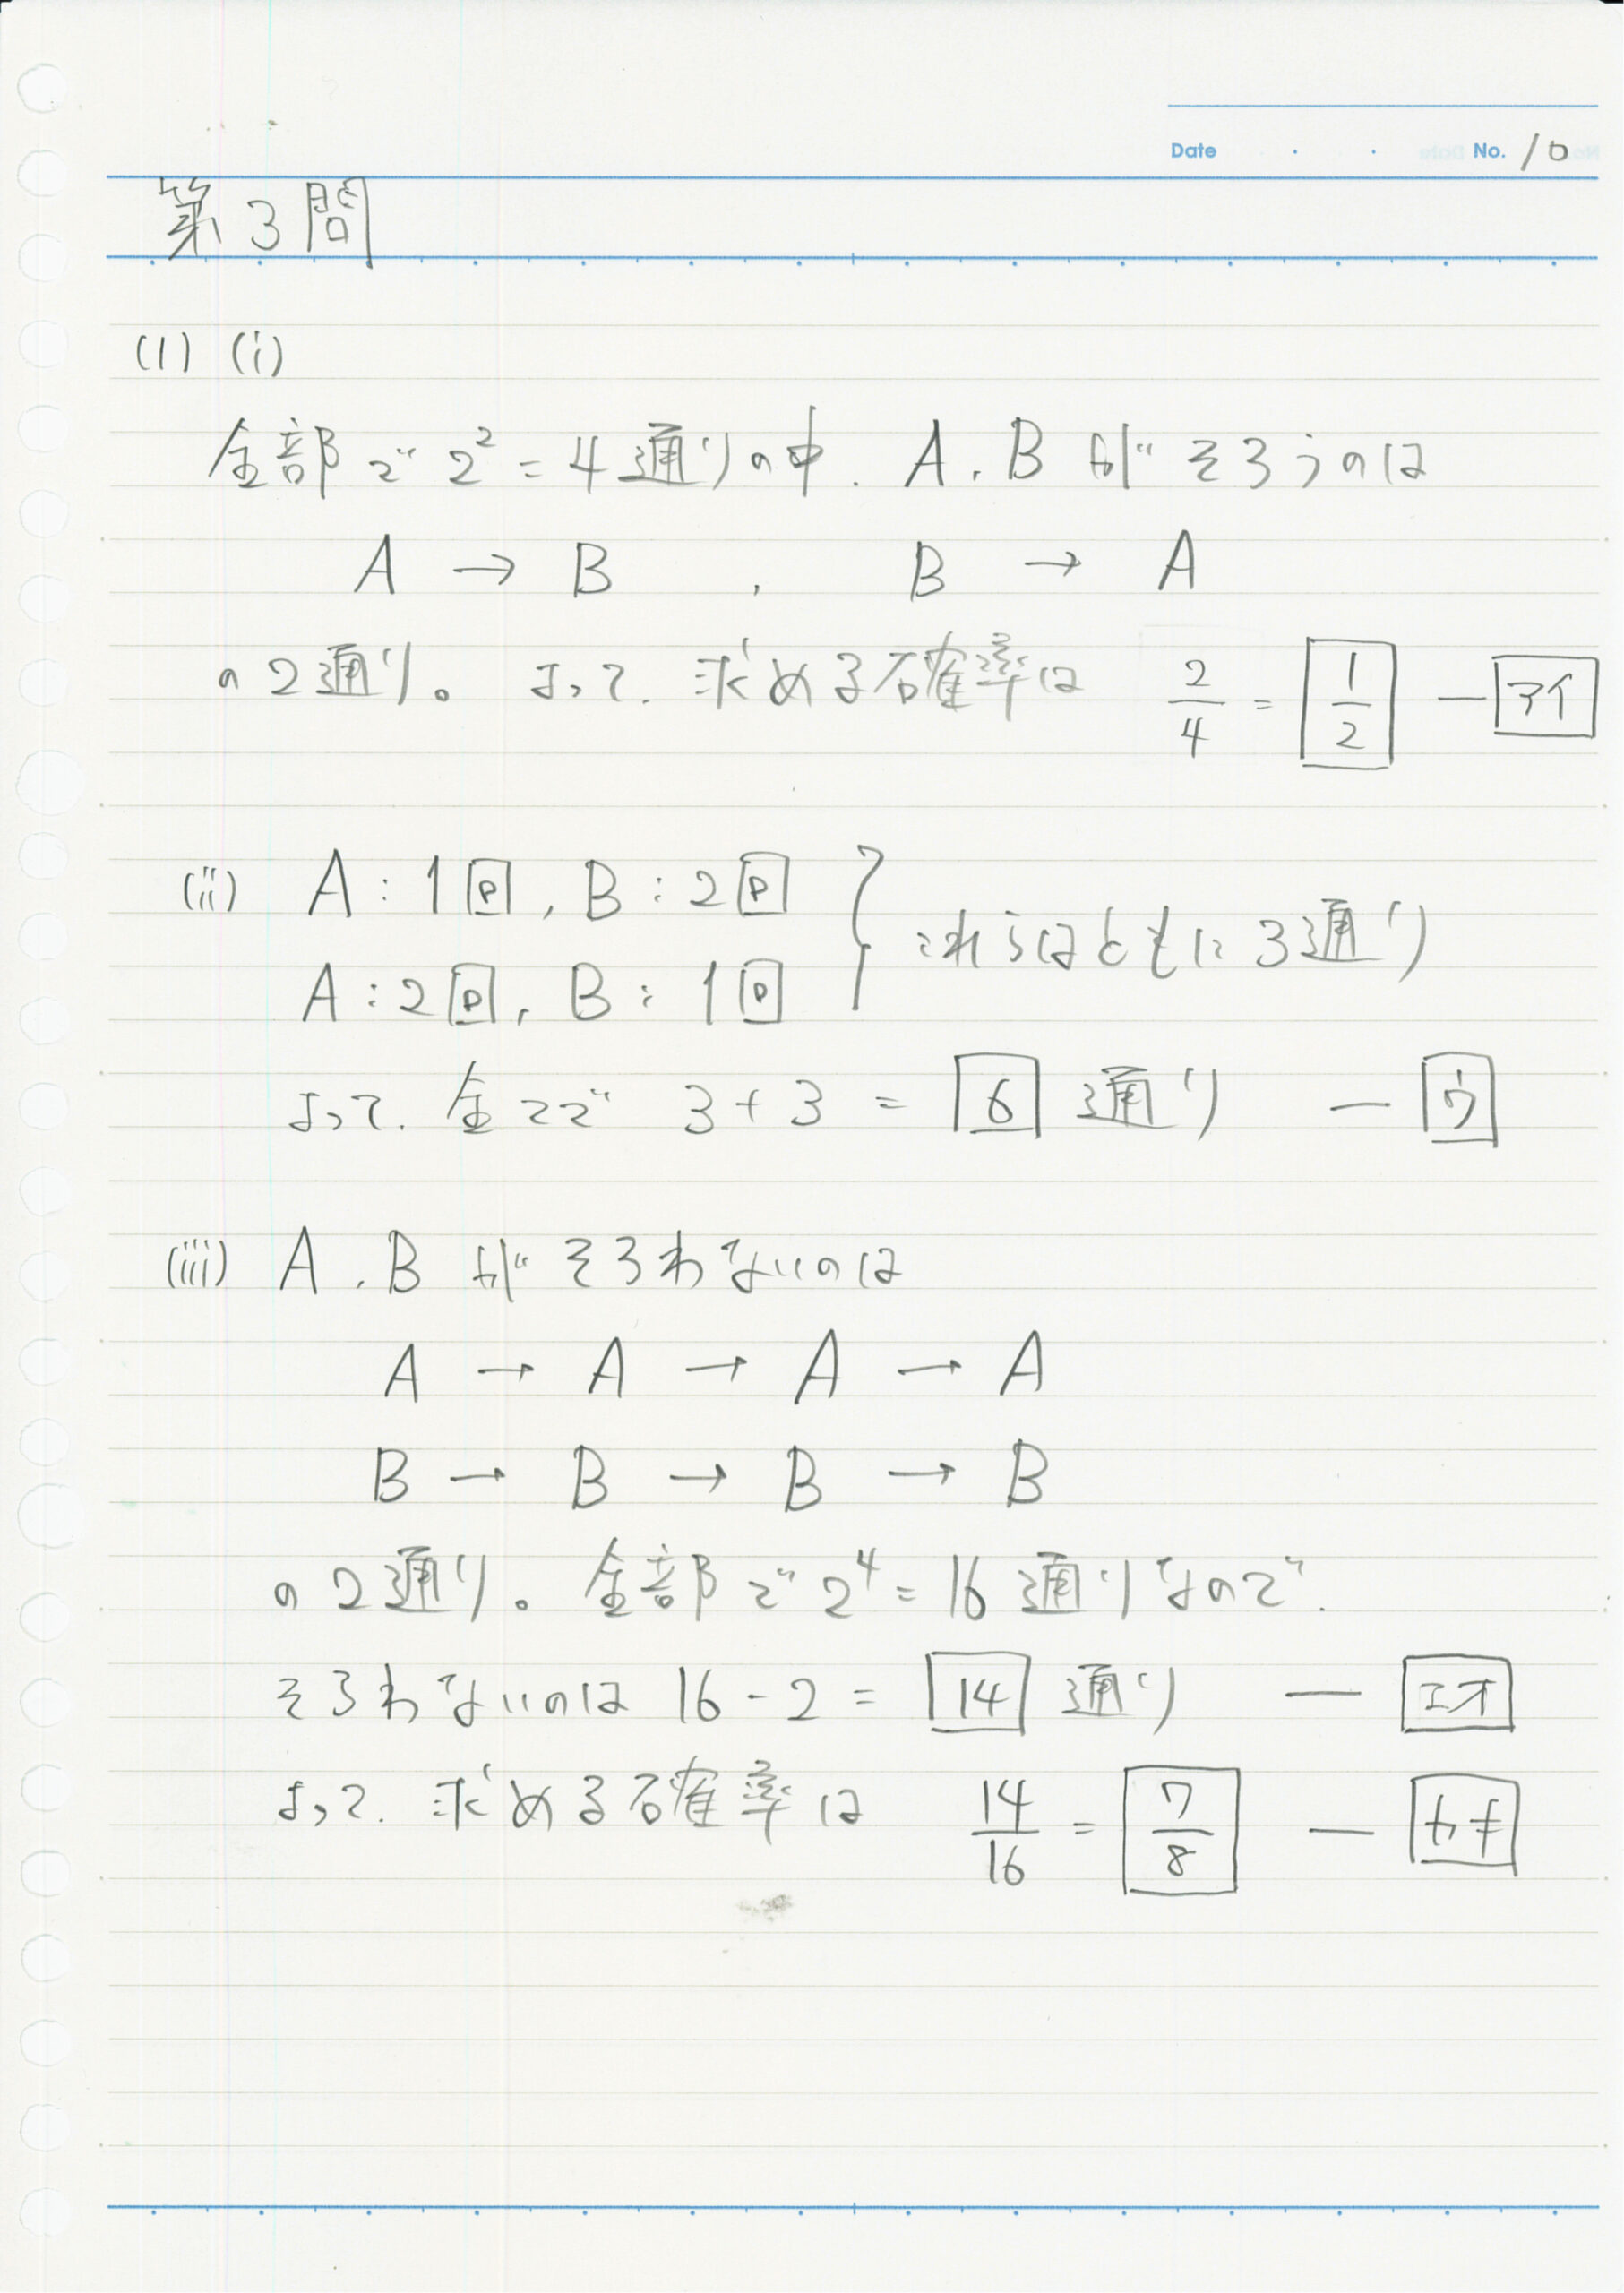 Date . . No. 10
第3問
(1) (i)
全部で 2² = 4通りの中、A、Bがそろうのは
A → B 、 B → A
の2通り。よって、求める確率は 2/4 = 1/2 — アイ
(ii) A:1回、B:2回
A:2回、B:1回 } これらはともに3通り
よって、全てで 3+3 = 6 通り — ウ
(iii) A、Bがそろわないのは
A → A → A → A
B → B → B → B
の2通り。全部で 2⁴ = 16通りなので、
そろわないのは 16-2 = 14 通り — エオ
よって、求める確率は 14/16 = 7/8 — カキ